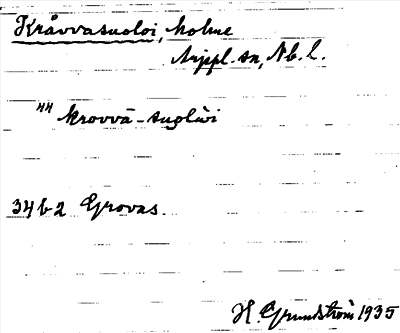 Kråvvasuoloi, holme
Arjepl. sn, Nb. l.
44 krovvā-suǫlŭi
34 b 2 Grovas.
H. Grundström 1935